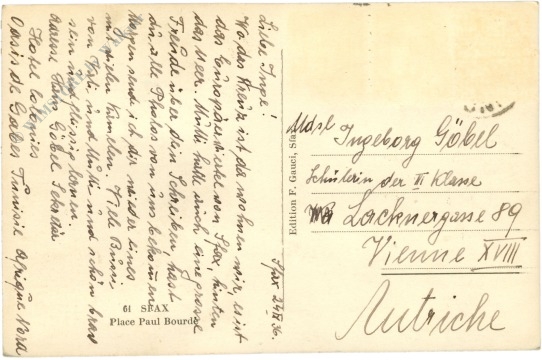 Sfax 24 IX 36.
Liebe Inge!
Wo das Kreuz ist da wohnen wir, es ist
das Europäerviertel von Sfax, hinten
das Meer. Mutti hatte auch eine grosse
Freude über dein Schreiben, hast
du alle Photos von uns bekommen
Morgen send ich dir wieder eines
mit vielen Kamelen. Viele Bussi
von Fati und Mutti und schön brav
sein und fleissig lernen.
Adresse Hans Göbel
Hotel
Oasis de Gabes Tunisie Afrique Nord
61 SFAX
Place Paul Bourde
Edition F. Gauci, Sfax
Mdsl Ingeborg Göbel
Schülerin der II Klasse
Lacknergasse 89
Vienne XVIII
Autriche